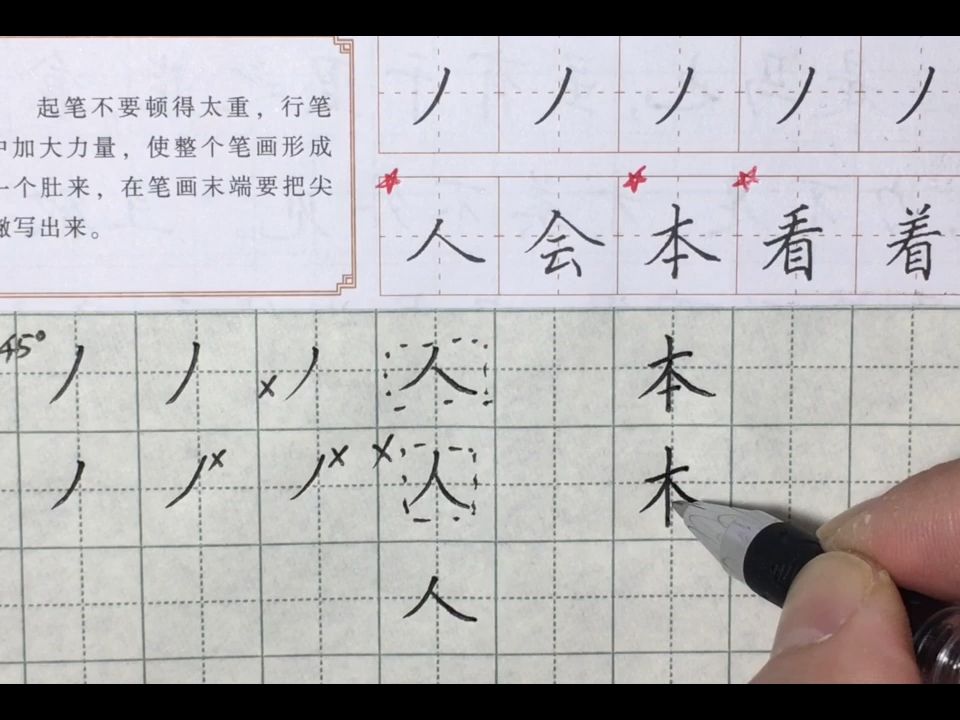 起笔不要顿得太重，行笔
中加大力量，使整个笔画形成
一个肚来，在笔画末端要把尖
撇写出来。
丿 丿 丿 丿 丿
人 会 本 看 着
45° 丿 丿 × 丿 人 本
丿 丿 × 丿 × × 人 木
人